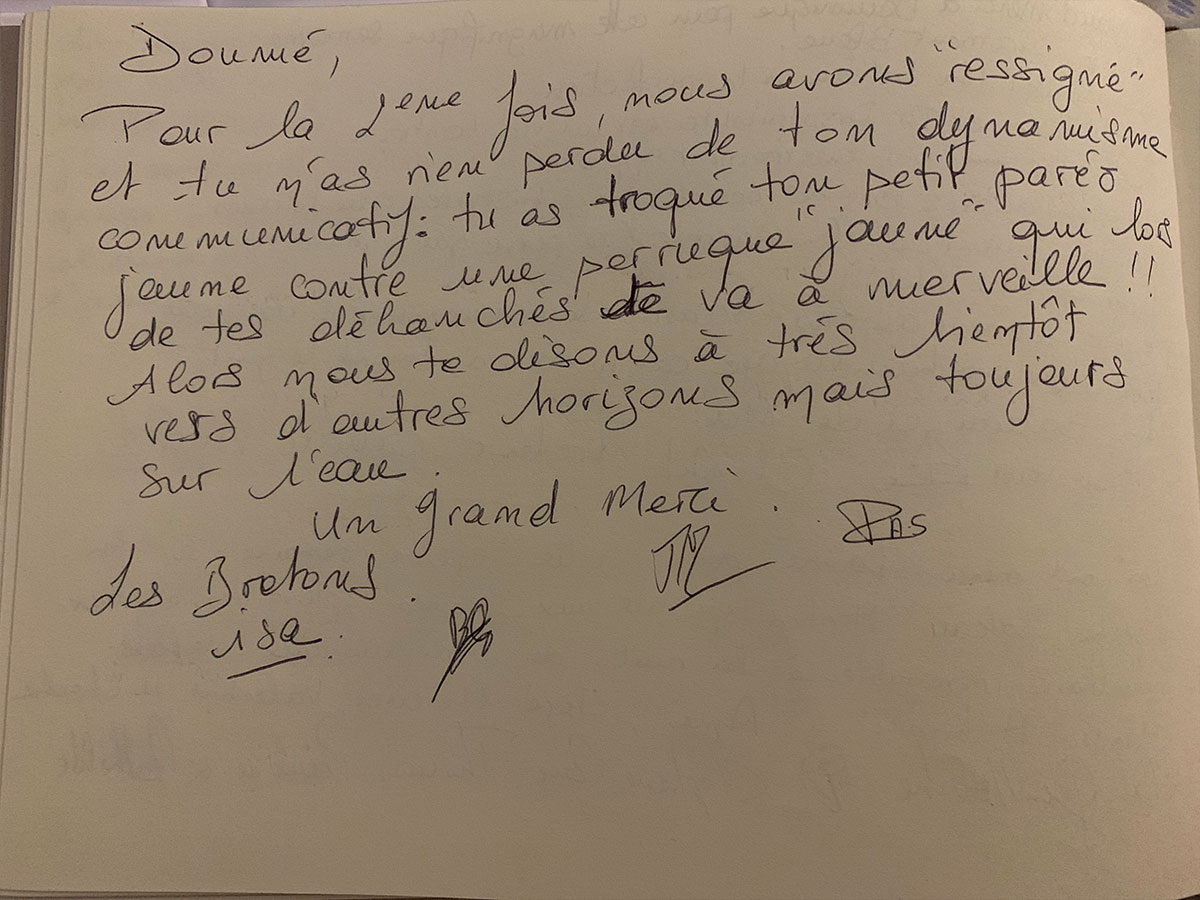 Doumé,
Pour la 2ème fois, nous avons "ressigné"
et tu n'as rien perdu de ton dynamisme
communicatif: tu as troqué ton petit paréo
jaune contre une perruque "jaune" qui lors
de tes déhanchés te va à merveille !!
Alors nous te disons à trés bientôt
vers d'autres horizons mais toujours
sur l'eau.
Un grand Merci.
PAS
JM
Les Bretons.
isa.